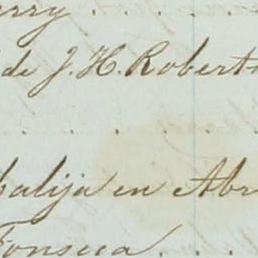 rry . . . .
de J. H. Robert
. . . . . .
balija en Abr
Fonseca . . .